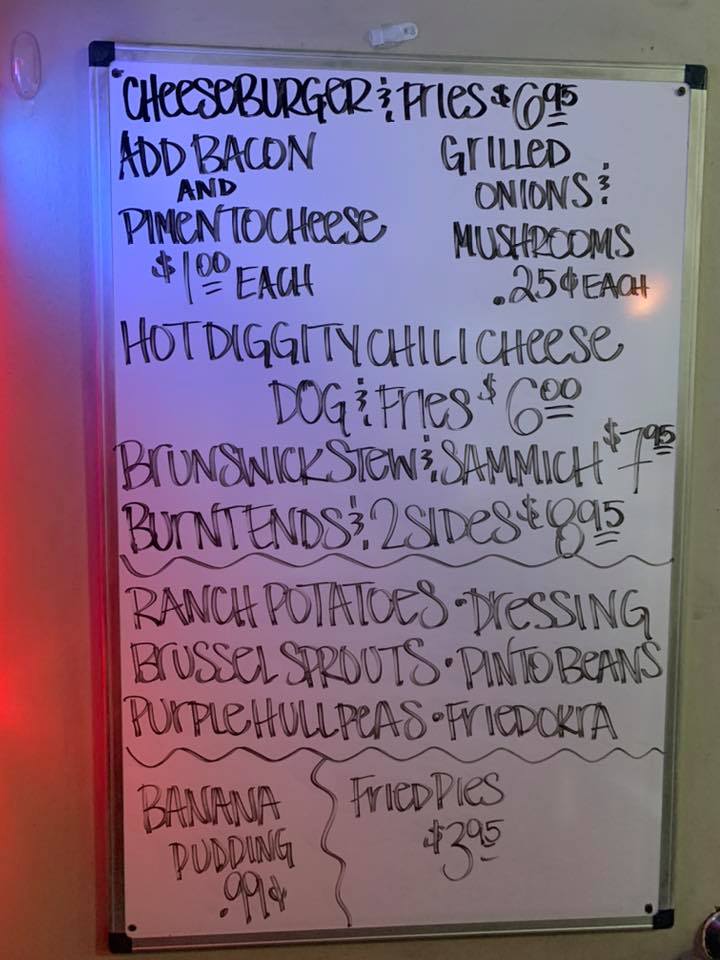 CHEESEBURGER & FRIES $6.95
ADD BACON
AND
PIMENTO CHEESE
$1.00 EACH
GRILLED
ONIONS &
MUSHROOMS
.25¢ EACH
HOT DIGGITY CHILI CHEESE
DOG & FRIES $6.00
BRUNSWICK STEW & SAMMICH $7.95
BURNT ENDS & 2 SIDES $8.95
RANCH POTATOES • DRESSING
BRUSSEL SPROUTS • PINTO BEANS
PURPLE HULL PEAS • FRIED OKRA
BANANA
PUDDING
.99¢
FRIED PIES
$3.95